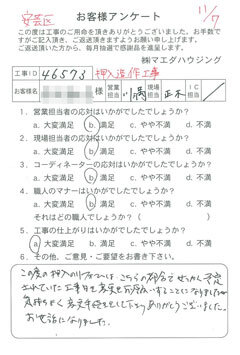 安芸区
お客様アンケート
11/7
この度は工事のご用命を頂きありがとうございました。お手数で
すがご記入頂き、ご返送頂きますようお願い申し上げます。
ご返送頂いた方から、毎月抽選で感謝品を進呈します。
㈱マエダハウジング
工事ID 46573 押入造作工事
お客様名 様 営業担当 現場担当 正木 IC担当
1．営業担当者の応対はいかがでしたでしょうか?
a. 大変満足 b. 満足 c. やや不満 d. 不満
2．現場担当者の応対はいかがでしたでしょうか?
a. 大変満足 b. 満足 c. やや不満 d. 不満
3．コーディネーターの応対はいかがでしたでしょうか?
a. 大変満足 b. 満足 c. やや不満 d. 不満
4．職人のマナーはいかがでしたでしょうか?
a. 大変満足 b. 満足 c. やや不満 d. 不満
それはどの職人でしょうか?（ ）
5．工事の仕上がりはいかがでしたでしょうか?
a. 大変満足 b. 満足 c. やや不満 d. 不満
6．その他、ご意見・ご要望をお書き下さい。
この度の押入のリフォームは、こちらの都合でせっかく予定
されていた工事日を変更をお願いすることになりましたが
気持ちよく変更手続をして下さりありがとうございました。
お世話になりました。